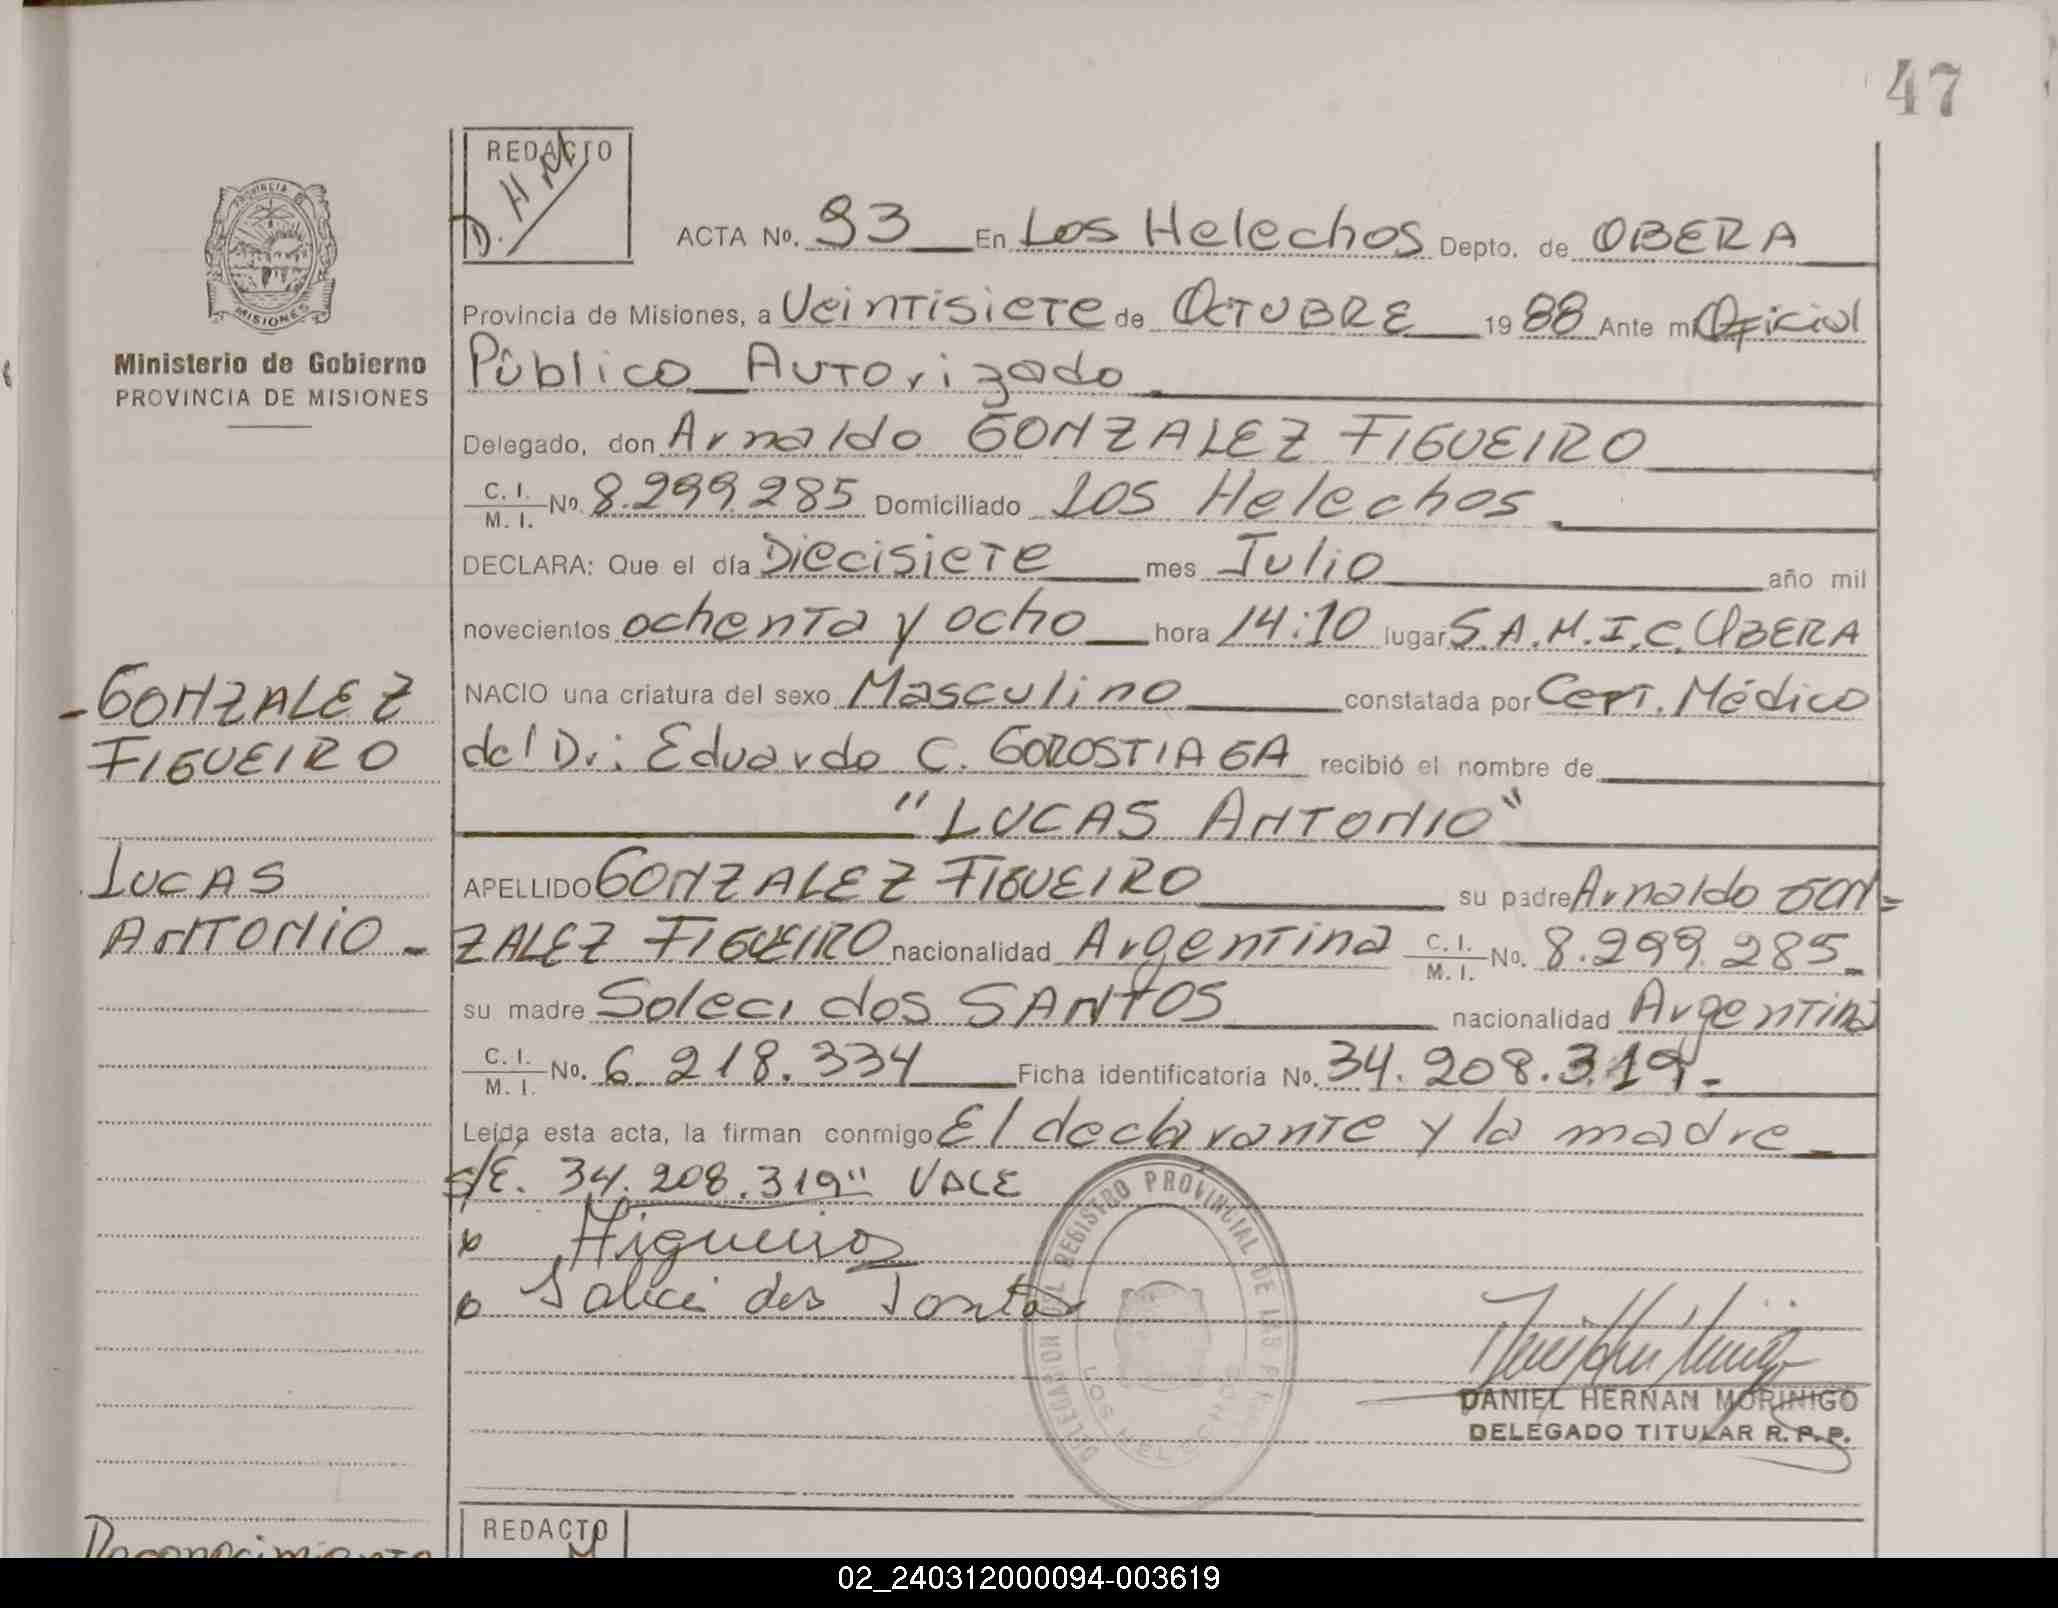 47
REDACTO
D. H. M
ACTA No. 93 En Los Helechos Depto. de OBERA
Provincia de Misiones, a Veintisiete de OCTUBRE 1988 Ante mi Oficial
Público Autorizado
Delegado, don Arnaldo GONZALEZ FIGUEIRO
C. I. / M. I. No. 8.299.285 Domiciliado Los Helechos
DECLARA: Que el día Diecisiete mes Julio año mil
novecientos ochenta y ocho hora 14:10 lugar S.A.M.I.C. OBERA
NACIO una criatura del sexo Masculino constatada por Cert. Médico
del Dr: Eduardo C. GOROSTIAGA recibió el nombre de
"LUCAS ANTONIO"
APELLIDO GONZALEZ FIGUEIRO su padre Arnaldo GON=
ZALEZ FIGUEIRO nacionalidad Argentina C. I. / M. I. No. 8.299.285_
su madre Soleci dos SANTOS nacionalidad Argentina
C. I. / M. I. No. 6.218.334 Ficha identificatoria No. 34.208.319.-
Leída esta acta, la firman conmigo El declarante y la madre
s/E. 34.208.319" VALE
Figueiro
Soleci dos Santos
DELEGACION DEL REGISTRO PROVINCIAL DE LAS
LOS HELECHOS
DANIEL HERNAN MORINIGO
DELEGADO TITULAR R. P. P.
PROVINCIA
MISIONES
Ministerio de Gobierno
PROVINCIA DE MISIONES
-GONZALEZ
FIGUEIRO
LUCAS
ANTONIO-
Reconocimiento
REDACTO
02_240312000094-003619